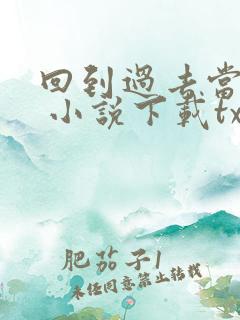 回到過去當
小說下載tx
肥茄子1
未經同意禁止轉載